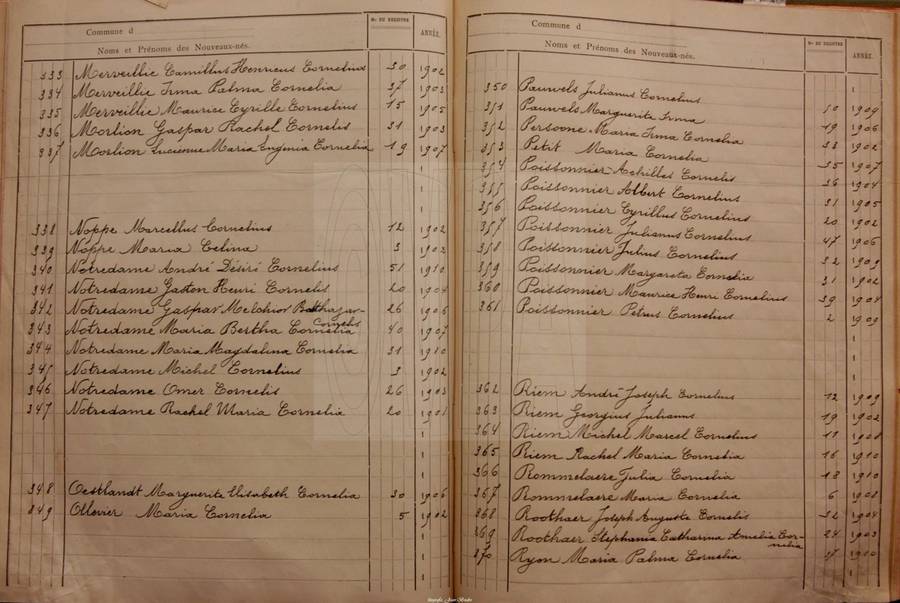 Commune d
Noms et Prénoms des Nouveaux-nés.
No DU REGISTRE
ANNÉE.
333 Merveillie Camillus Henricus Cornelius 30 1902
334 Merveillie Irma Palma Cornelia 37 1903
335 Merveillie Maurice Cyrille Cornelius 15 1905
336 Morlion Gaspar Rachel Cornelis 31 1903
337 Morlion Lucienne Maria Eugenia Cornelia 19 1907
338 Noppe Marcellus Cornelius 12 1902
339 Noppe Maria Celina 3 1902
340 Notredame André Désiré Cornelius 51 1910
341 Notredame Gaston Henri Cornelis 20 1904
342 Notredame Gaspar Melchior Balthazar 26 1906
Cornelis
343 Notredame Maria Bertha Cornelia 40 1907
344 Notredame Maria Magdalena Cornelia 31 1910
345 Notredame Michel Cornelius 3 1902
346 Notredame Omer Cornelis 26 1903
347 Notredame Rachel Maria Cornelia 20 1901
348 Oestlandt Marguerite Elisabeth Cornelia 30 1906
349 Ollevier Maria Cornelia 5 1902
Commune d
Noms et Prénoms des Nouveaux-nés.
No DU REGISTRE
ANNÉE.
350 Pauwels Julianus Cornelius
351 Pauwels Marguerite Irma 10 1909
352 Persoone Maria Irma Cornelia 19 1906
353 Petit Maria Cornelia 33 1902
354 Poissonnier Achilles Cornelis 35 1907
355 Poissonnier Albert Cornelius 36 1904
356 Poissonnier Cyrillus Cornelius 31 1905
357 Poissonnier Julianus Cornelius 20 1902
358 Poissonnier Julius Cornelius 47 1906
359 Poissonnier Margareta Cornelia 32 1909
360 Poissonnier Maurice Henri Cornelius 31 1902
361 Poissonnier Petrus Cornelius 39 1904
2 1909
362 Riem André Joseph Cornelius 12 1909
363 Riem Georgius Julianus 19 1902
364 Riem Michel Marcel Cornelius 11 1908
365 Riem Rachel Maria Cornelia 16 1910
366 Rommelaere Julia Cornelia 18 1910
367 Rommelaere Maria Cornelia 6 1908
368 Roothaer Joseph Auguste Cornelis 32 1904
369 Roothaer Stephania Catharina Amelia Cor- 24 1903
nelia
370 Ryon Maria Palma Cornelia 37 1900